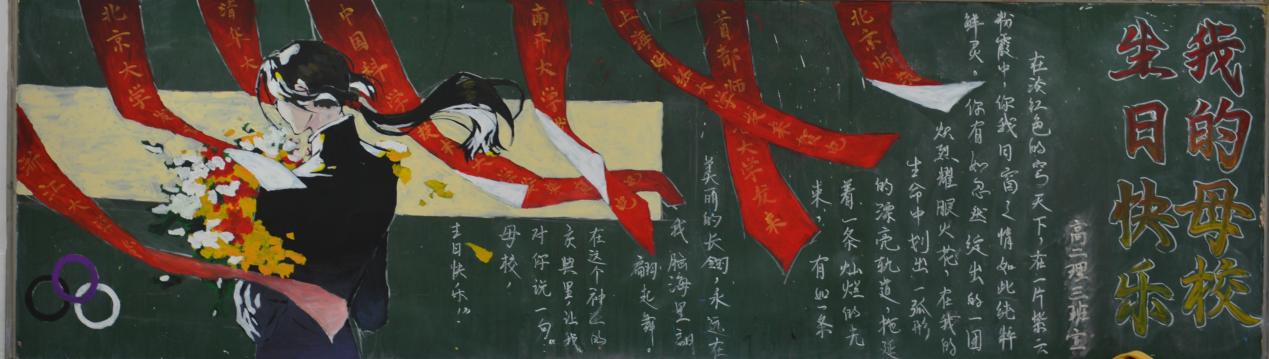 我的母校
生日快乐
高二理三班宣
在淡红色的穹天下，在一片紫云
粉霞中，你我同窗之情如此纯粹
鲜灵。你有如忽然绽出的一团
炽烈耀眼火花，在我的
生命中划出一弧形
的漂亮轨道，拖延
着一条灿烂的光
束，有如一条
美丽的长绸，永远在
我脑海里翩
翩起舞。
在这个神圣的
庆典里让我
对你说一句：
母校，
生日快乐！
北京师
首都师 大学校友
上海財经大学
南开大学
中国科 学
清华大
北京大学
浙江大